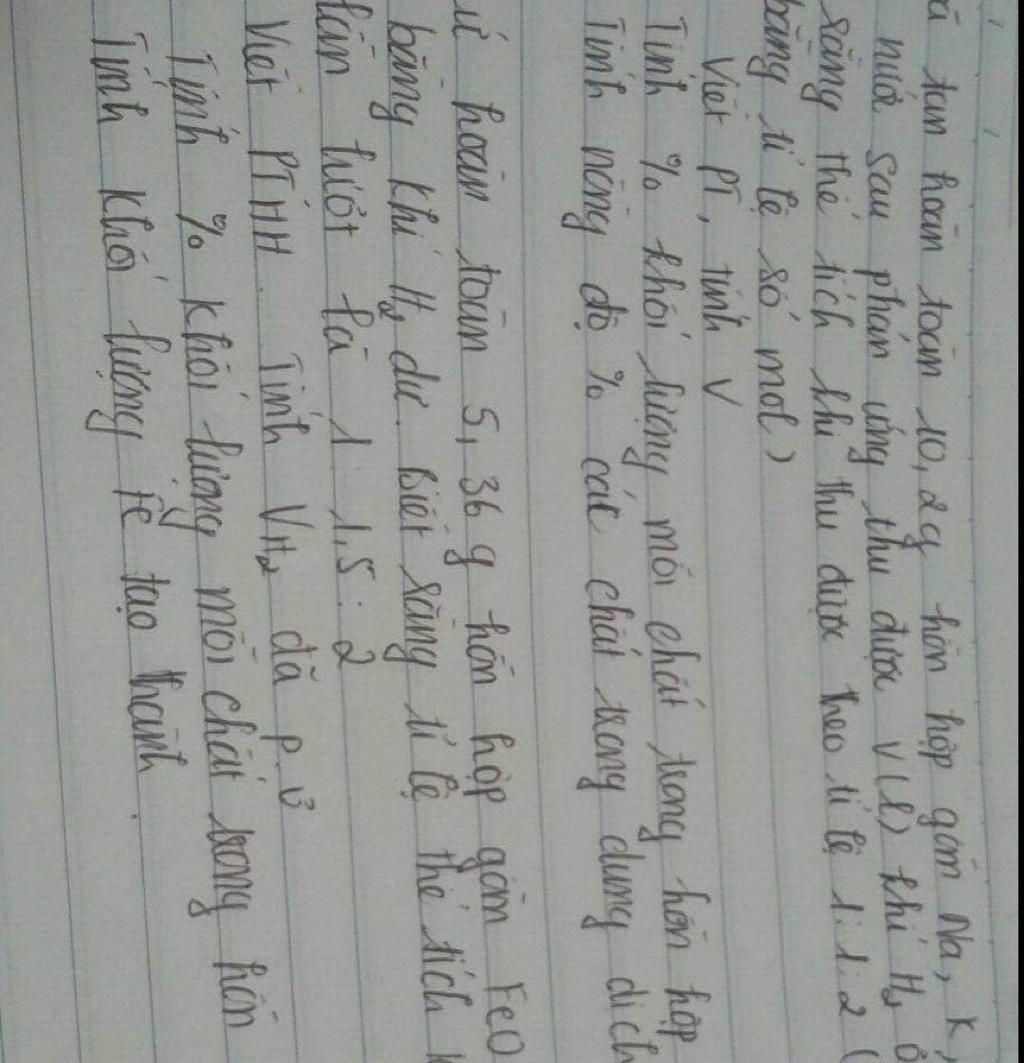 tan hoàn toàn 10,2g hỗn hợp gồm Na, K
nước sau phản ứng thu được V(l) khí H2 ở
rằng thể tích khí thu được theo tỉ lệ 1:1:2 (
bằng tỉ lệ số mol)
Viết PT, tính V
Tính % khối lượng mỗi chất trong hỗn hợp
Tính nồng độ % các chất trong dung dịch
hoàn toàn 5,36 g hỗn hợp gồm FeO
bằng khí H2 dư. Biết rằng tỉ lệ thể tích
lần lượt là 1 1,5:2
Viết PTHH. Tính VH2 đã p.ứ
Tính % khối lượng mỗi chất trong hỗn
Tính khối lượng Fe tạo thành.